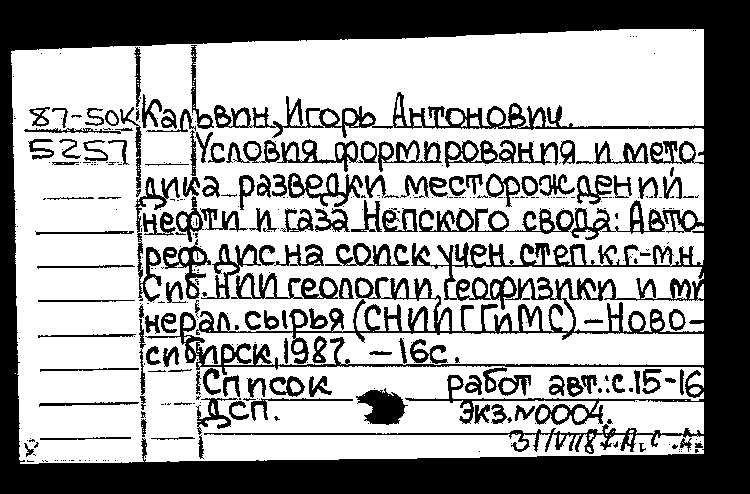 87-50к Кальвин, Игорь Антонович.
5257 Условия формирования и мето-
дика разведки месторождений
нефти и газа Непского свода: Авто-
реф. дис. на соиск. учен. степ. к.г.-м.н.
Сиб. НИИ геологии, геофизики и ми
нерал. сырья (СНИИГГиМС) – Ново-
сибирск, 1987. – 16с.
Список работ авт.: с. 15-16
ДСП. Экз. №0004.
31/VII 87